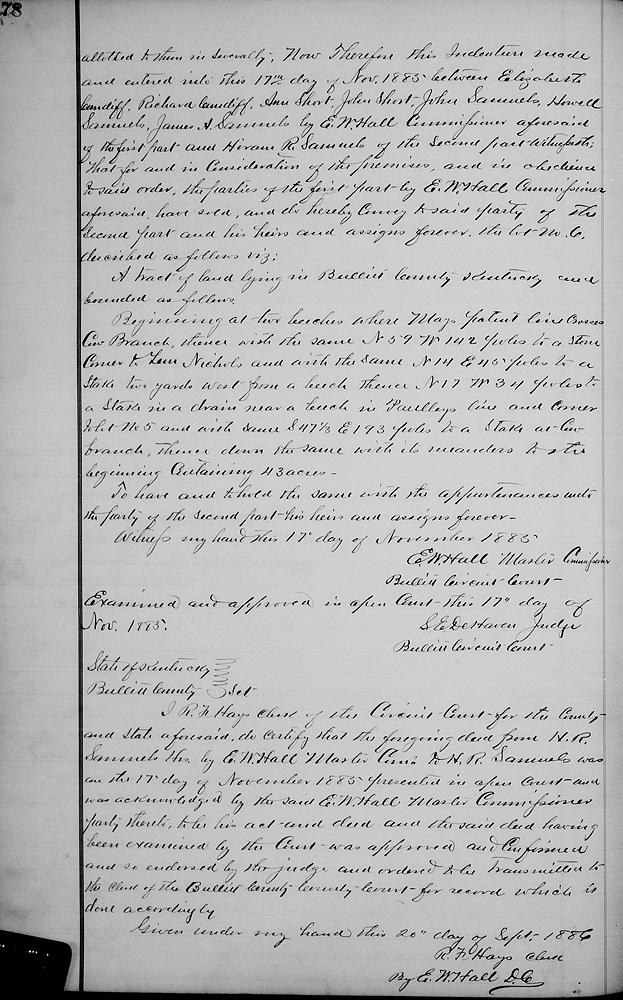 78
allotted to them in severalty, Now Therefore this Indenture made
and entered into this 17th day of Nov. 1885 between Elizabeth
Cundiff, Richard Cundiff, Ann Short, John Short, John Samuels, Howell
Samuels, James A. Samuels by E. W. Hall Commissioner aforesaid
of the first part and Hiram R. Samuels of the Second part Witnesseth;
That for and in Consideration of the premises, and in obedience
to said order, the parties of the first part by E. W. Hall Commissioner
aforesaid, have sold, and do hereby Convey to said party of the
Second part and his heirs and assigns forever, the lot No. 6,
described as follows viz:
A tract of land lying in Bullitt County Kentucky and
bounded as follows.
Beginning at two beeches where Mays patent line Crosses
Cow Branch, thence with the same N 59 W 142 poles to a Stone
Corner to Lem Nichols and with the same N 14 E 45 poles to a
Stake two yards west from a beech thence N 17 W 34 poles to
a Stake in a drain near a beech in Paulleys line and Corner
to lot No 5 and with same S 47 1/3 E 193 poles to a Stake at Cow
branch, thence down the same with its meanders to the
beginning Containing 43 acres -
To have and to hold the same with the appurtenances unto
the party of the Second part his heirs and assigns forever -
Witness my hand this 17" day of November 1885
E. W. Hall Master Commissioner
Bullitt Circuit Court
Examined and approved in open Court this 17" day of
Nov. 1885.
S. E. DeHaven Judge
Bullitt Circuit Court
State of Kentucky
Bullitt County Sct
I R. F. Hays Clerk of the Circuit Court for the County
and State aforesaid, do certify that the foregoing deed from H. R.
Samuels Hrs. by E. W. Hall Master Com'r to H. R. Samuels was
on the 17 day of November 1885 presented in open Court and
was acknowledged by the said E. W. Hall Master Commissioner
party thereto, to be his act and deed and the said deed having
been examined by the Court was approved and Confirmed
and so endorsed by the judge and ordered to be Transmitted to
the clerk of the Bullitt County County Court for record which is
done accordingly
Given under my hand this 20" day of Sept. 1886
R. F. Hays Clerk
By E. W. Hall D. C.